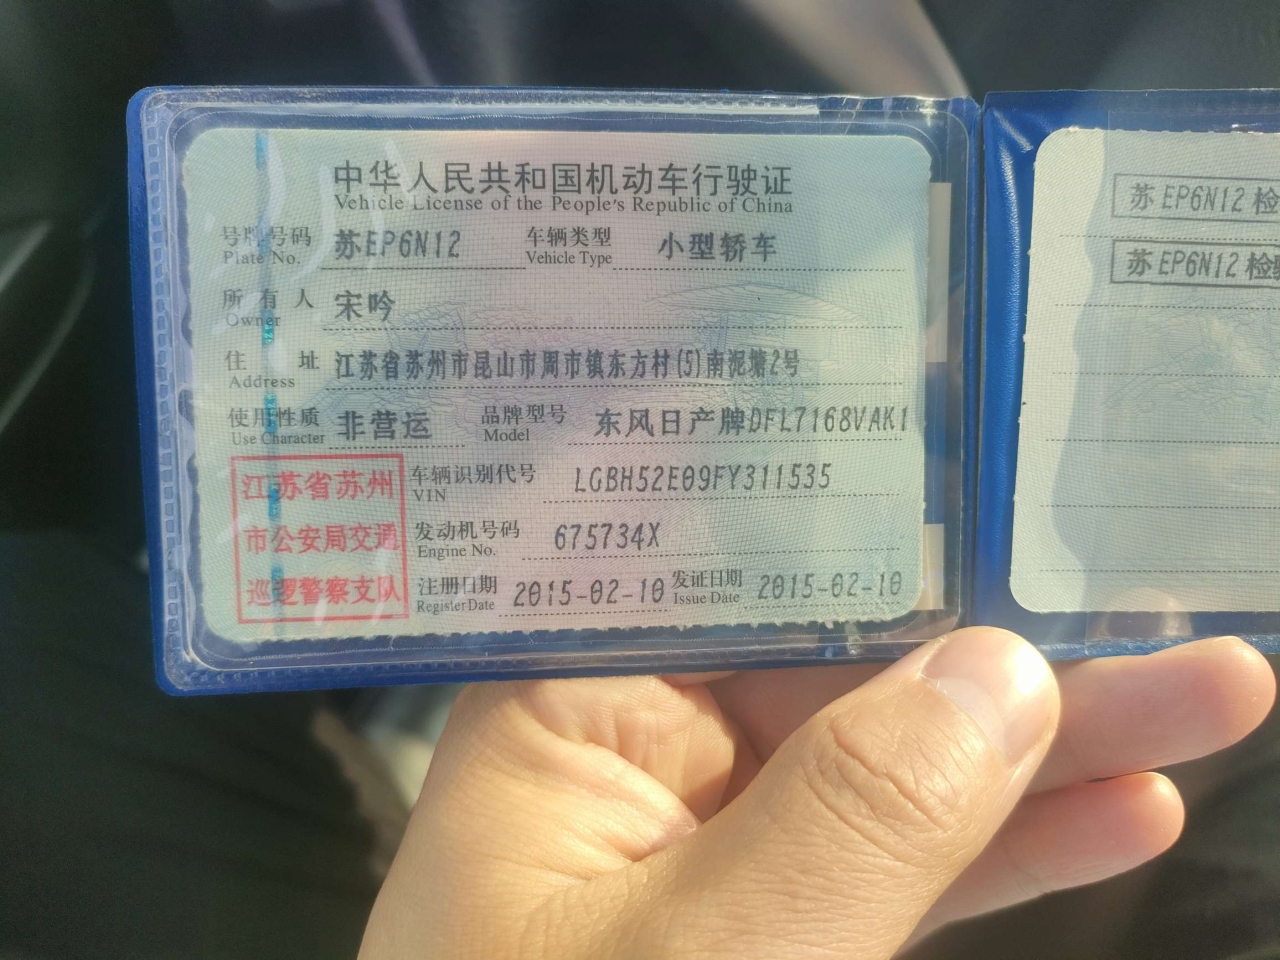 中华人民共和国机动车行驶证
Vehicle License of the People's Republic of China
号牌号码 苏EP6N12 车辆类型 小型轿车
Plate No. Vehicle Type
所有人 宋吟
Owner
住址 江苏省苏州市昆山市周市镇东方村(5)南泥塘2号
Address
使用性质 非营运 品牌型号 东风日产牌DFL7168VAK1
Use Character Model
江苏省苏州
市公安局交通
巡逻警察支队
车辆识别代号 LGBH52E09FY311535
VIN
发动机号码 675734X
Engine No.
注册日期 2015-02-10 发证日期 2015-02-10
Register Date Issue Date
苏EP6N12检
苏EP6N12检